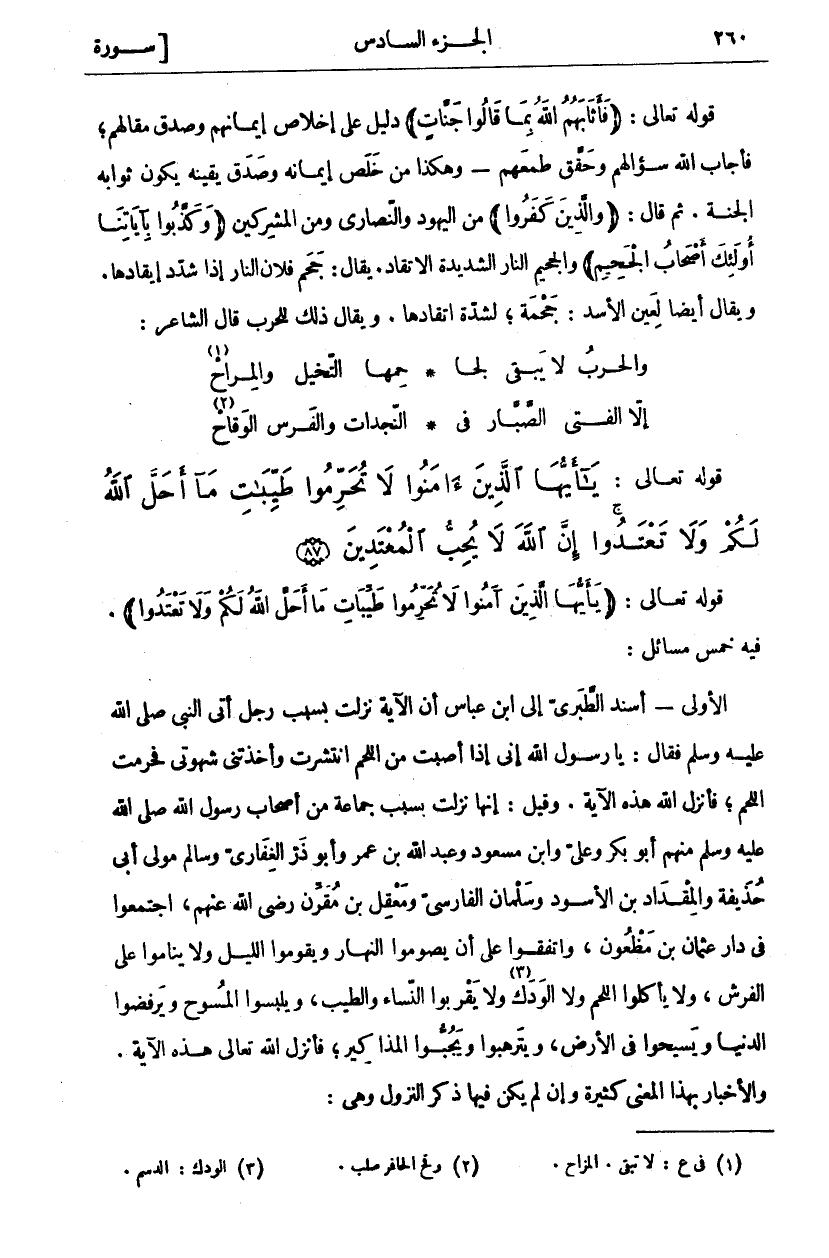 ٢٦٠ الجـزء السـادس [ سـورة
قوله تعالى : ﴿ فَأَثَابَهُمُ اللَّهُ بِمَا قَالُوا جَنَّاتٍ ﴾ دليل على إخلاص إيمانهم وصدق مقالهم ؛
فأجاب الله سؤالهم وحَقّق طمعَهم — وهكذا من خَلَص إيمانه وصَدَق يقينه يكون ثوابه
الجنـة . ثم قال : ﴿ والَّذِينَ كَفَرُوا ﴾ من اليهود والنّصارى ومن المشركين ﴿ وَكَذَّبُوا بِآيَاتِنَا
أُولَئِكَ أَصْحَابُ الْجَحِيمِ ﴾ والجحيم النار الشديدة الاتقاد . يقال : جَحَم فلان النار إذا شدّد إيقادها .
ويقال أيضا لِعَين الأسد : جَحْمَة ؛ لشدّة اتقادها . ويقال ذلك للحرب قال الشاعر :
والحـربُ لا يَبـقى لجـا * حِمهـا التّخيل والمِـراحُ (١)
إلّا الفـتى الصَّبَّـار فى * النّجدات والفَـرس الوَقاحُ (٢)
قوله تعـالى : يَـٰٓأَيُّهَا ٱلَّذِينَ ءَامَنُوا لَا تُحَرِّمُوا طَيِّبَـٰتِ مَآ أَحَلَّ ٱللَّهُ
لَكُمْ وَلَا تَعْتَدُوا ۚ إِنَّ ٱللَّهَ لَا يُحِبُّ ٱلْمُعْتَدِينَ ﴿٨٧﴾
قوله تعـالى : ﴿ يَأَيُّهَا الَّذِينَ آمَنُوا لَا تُحَرِّمُوا طَيِّبَاتِ مَا أَحَلَّ اللَّهُ لَكُمْ وَلَا تَعْتَدُوا ﴾ .
فيه خمس مسائل :
الأولى — أسند الطَّبَرىّ إلى ابن عباس أن الآية نزلت بسبب رجل أتى النبى صلى الله
عليـه وسلم فقال : يا رسـول الله إنى إذا أصبت من اللحم انتشرت وأخذتنى شهوتى فحرمت
اللحم ؛ فأنزل الله هذه الآية . وقيل : إنها نزلت بسبب جماعة من أصحاب رسول الله صلى الله
عليه وسلم منهم أبو بكر وعلىّ وابن مسعود وعبد الله بن عمر وأبو ذَرّ الغِفَارىّ وسالم مولى أبى
حُذَيفة والمِقْـدَاد بن الأسـود وسَلْمان الفارسىّ ومَعْقِل بن مُقَرِّن رضى الله عنهم ، اجتمعوا
فى دار عثمان بن مَظْعُون ، واتفقـوا على أن يصوموا النهـار ويقوموا الليـل ولا يناموا على
الفرش ، ولا يأكلوا اللحم ولا الوَدَك (٣) ولا يَقْربوا النّساء والطيب ، ويلبسوا المُسوح ويَرفضوا
الدنيـا ويَسيحوا فى الأرض ، ويترهبوا ويَجُبُّـوا المذاكير ؛ فأنزل الله تعالى هـذه الآية .
والأخبار بهذا المعنى كثيرة وإن لم يكن فيها ذكر النزول وهى :
(١) فى ع : لا تبقى . المزاح . (٢) وقح الحافر صلب . (٣) الودك : الدسم .